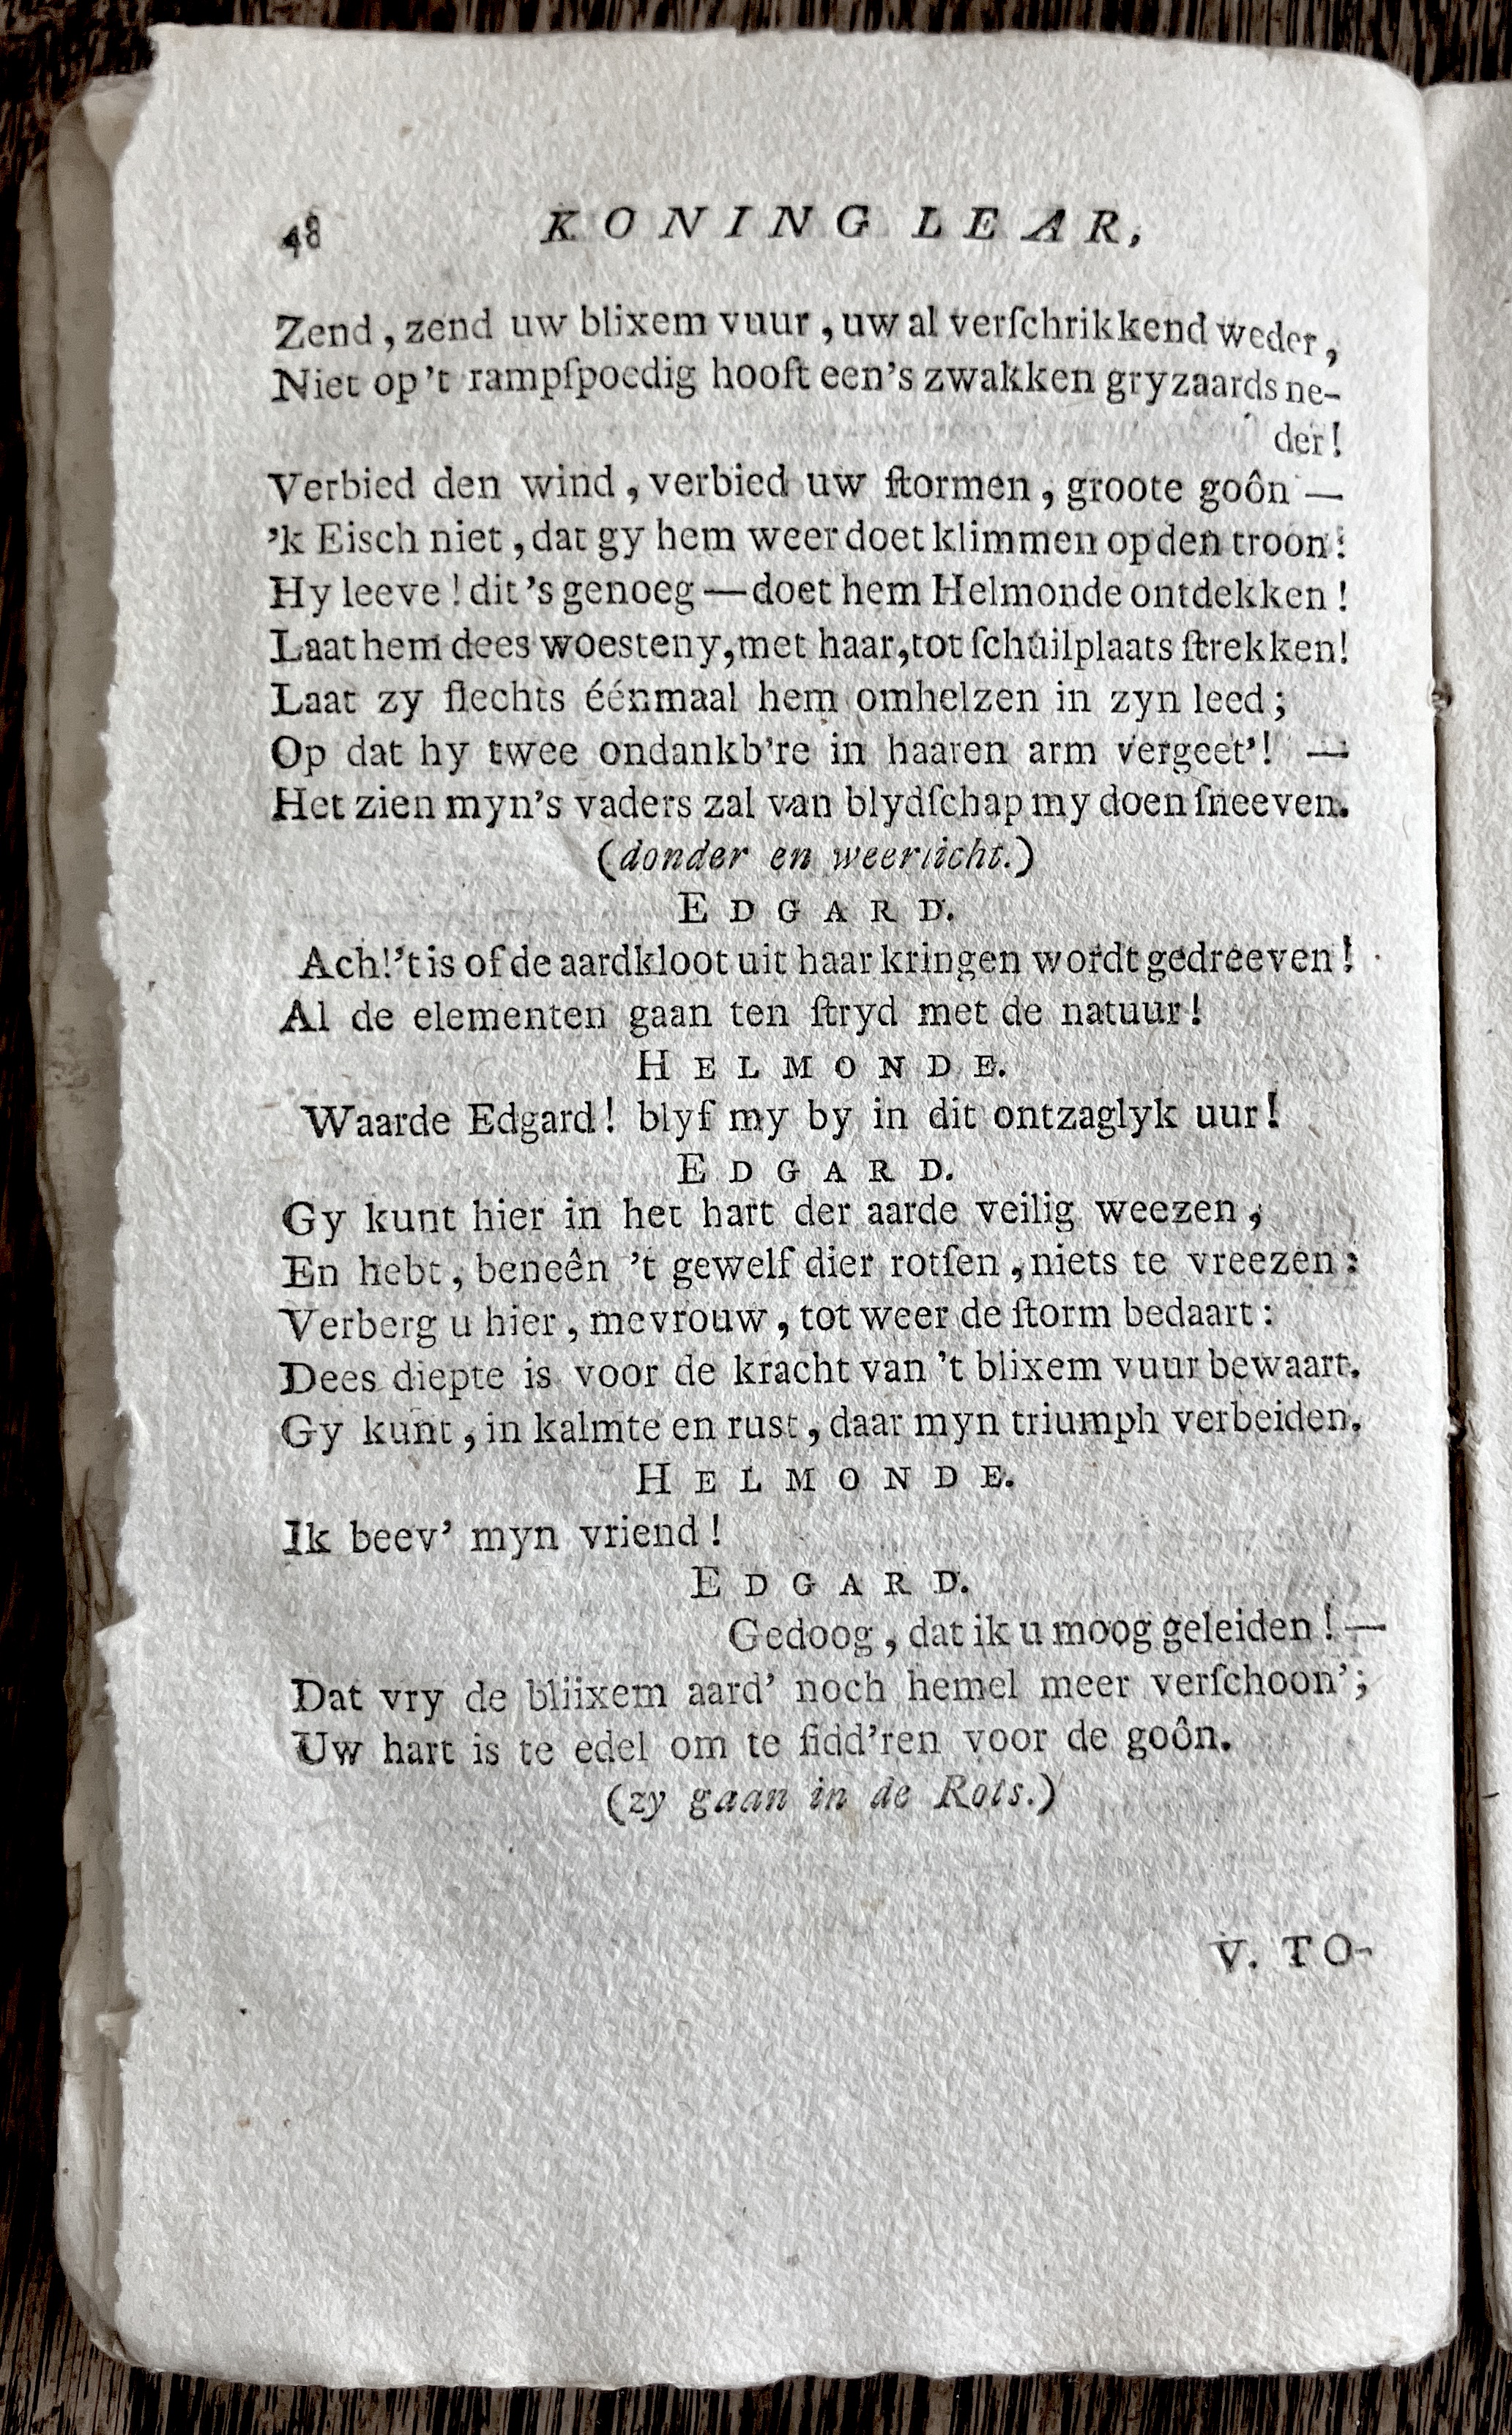 48 KONING LEAR,
Zend, zend uw blixem vuur, uw al verſchrikkend weder,
Niet op 't rampſpoedig hooft een's zwakken gryzaards ne-
der!
Verbied den wind, verbied uw ſtormen, groote goôn —
'k Eisch niet, dat gy hem weer doet klimmen op den troon:
Hy leeve! dit 's genoeg — doet hem Helmonde ontdekken!
Laat hem dees woesteny, met haar, tot ſchuilplaats ſtrekken!
Laat zy ſlechts éénmaal hem omhelzen in zyn leed;
Op dat hy twee ondankb're in haaren arm vergeet'! —
Het zien myn's vaders zal van blydſchap my doen ſneeven.
(donder en weerlicht.)
EDGARD.
Ach! 't is of de aardkloot uit haar kringen wordt gedreeven!
Al de elementen gaan ten ſtryd met de natuur!
HELMONDE.
Waarde Edgard! blyf my by in dit ontzaglyk uur!
EDGARD.
Gy kunt hier in het hart der aarde veilig weezen,
En hebt, beneên 't gewelf dier rotſen, niets te vreezen:
Verberg u hier, mevrouw, tot weer de ſtorm bedaart:
Dees diepte is voor de kracht van 't blixem vuur bewaart.
Gy kunt, in kalmte en rust, daar myn triumph verbeiden.
HELMONDE.
Ik beev' myn vriend!
EDGARD.
Gedoog, dat ik u moog geleiden! —
Dat vry de bliixem aard' noch hemel meer verſchoon';
Uw hart is te edel om te ſidd'ren voor de goôn.
(zy gaan in de Rots.)
V. TO-